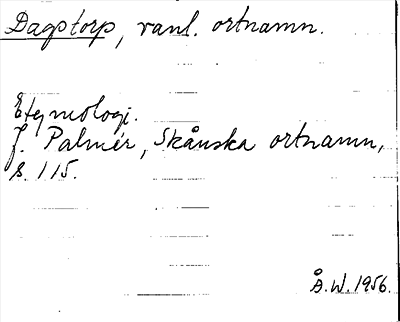 Dagstorp, vanl. ortnamn.
Etymologi.
J. Palmér, Skånska ortnamn,
s. 115.
Å.W.1956.